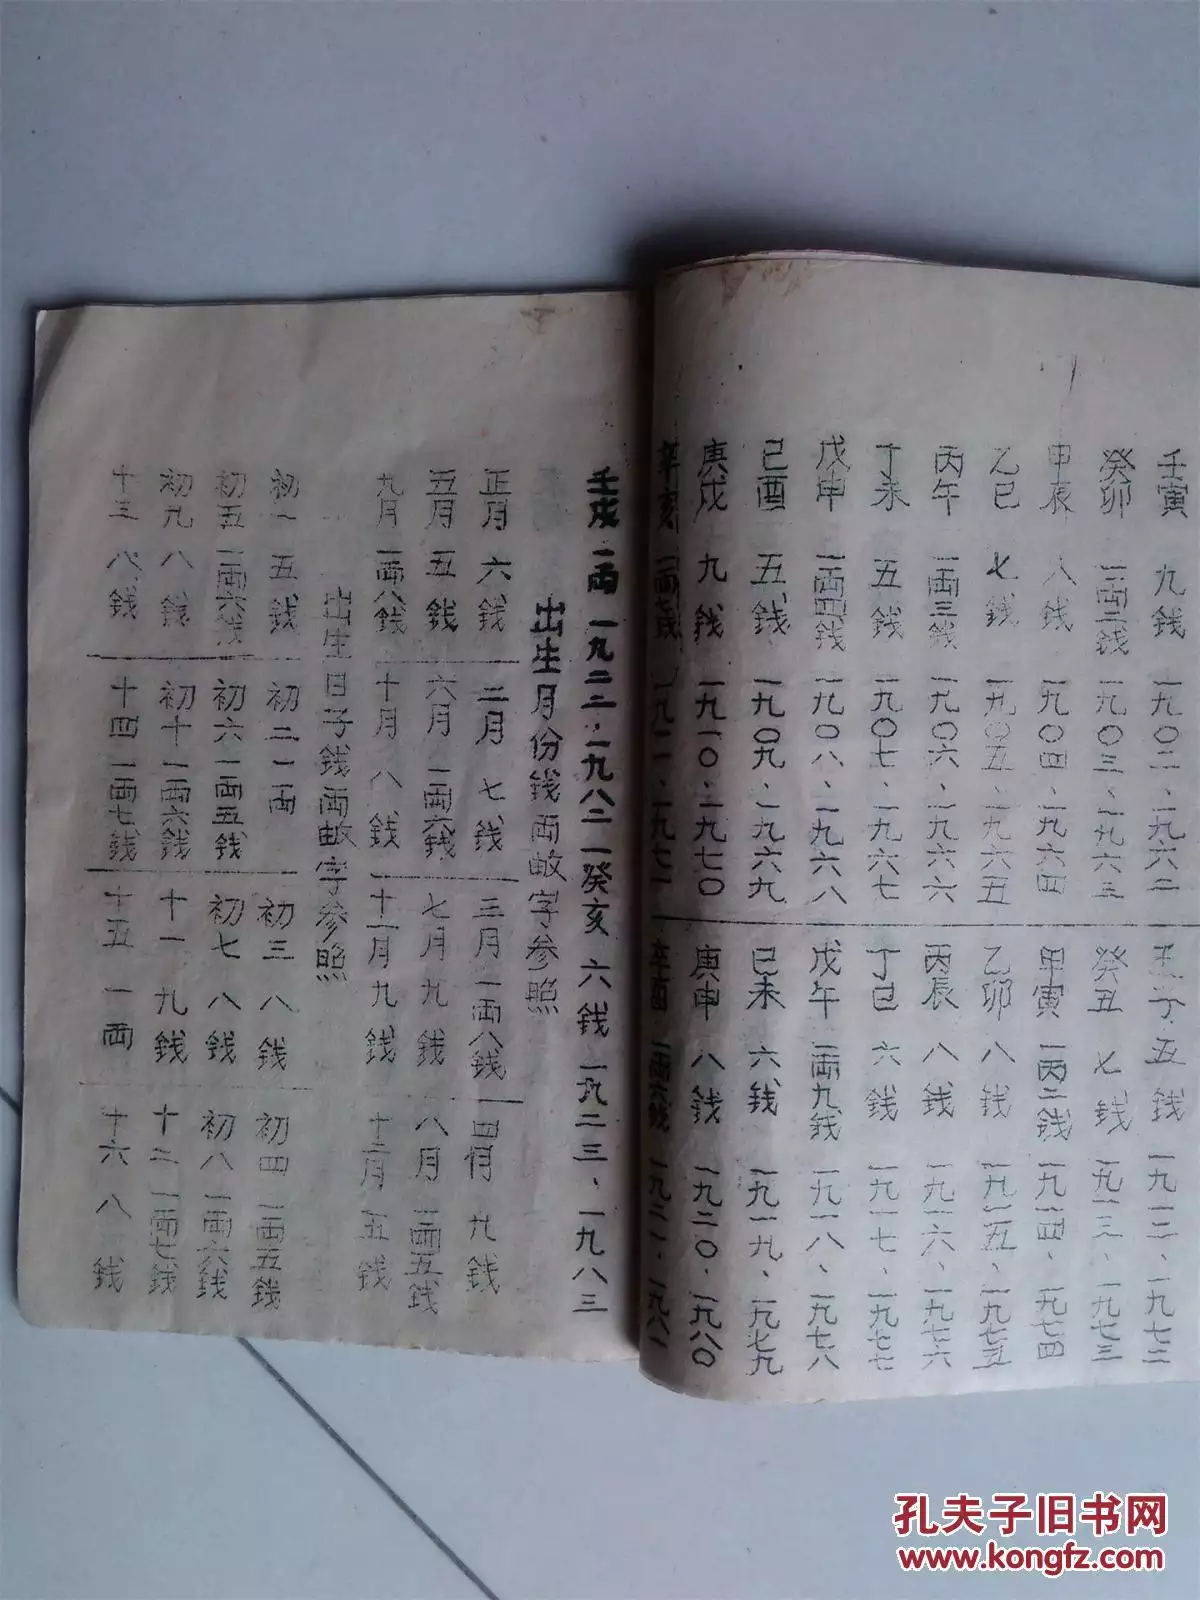 壬寅 九錢 一九〇二、一九六二 壬子 五錢 一九一二、一九七二
癸卯 一両二錢 一九〇三、一九六三 癸丑 七錢 一九一三、一九七三
甲辰 八錢 一九〇四、一九六四 甲寅 一丙二錢 一九一四、一九七四
乙巳 七錢 一九〇五、一九六五 乙卯 八錢 一九一五、一九七五
丙午 一両三錢 一九〇六、一九六六 丙辰 八錢 一九一六、一九七六
丁未 五錢 一九〇七、一九六七 丁巳 六錢 一九一七、一九七七
戊申 一両四錢 一九〇八、一九六八 戊午 一両九錢 一九一八、一九七八
己酉 五錢 一九〇九、一九六九 己未 六錢 一九一九、一九七九
庚戌 九錢 一九一〇、一九七〇 庚申 八錢 一九二〇、一九八〇
辛亥 一両七錢 一九一一、一九七一 辛酉 一両六錢 一九二一、一九八一
壬戌 一両 一九二二、一九八二 癸亥 六錢 一九二三、一九八三
出生月份錢両数字参照
正月 六錢 二月 七錢 三月 一両八錢 四月 九錢
五月 五錢 六月 一両六錢 七月 九錢 八月 一両五錢
九月 一両八錢 十月 八錢 十一月 九錢 十二月 五錢
出生日子錢両数字参照
初一 五錢 初二 一両 初三 八錢 初四 一両五錢
初五 一両六錢 初六 一両五錢 初七 八錢 初八 一両六錢
初九 八錢 初十 一両六錢 十一 九錢 十二 一両七錢
十三 八錢 十四 一両七錢 十五 一両 十六 八錢
孔夫子旧书网
www.kongfz.com